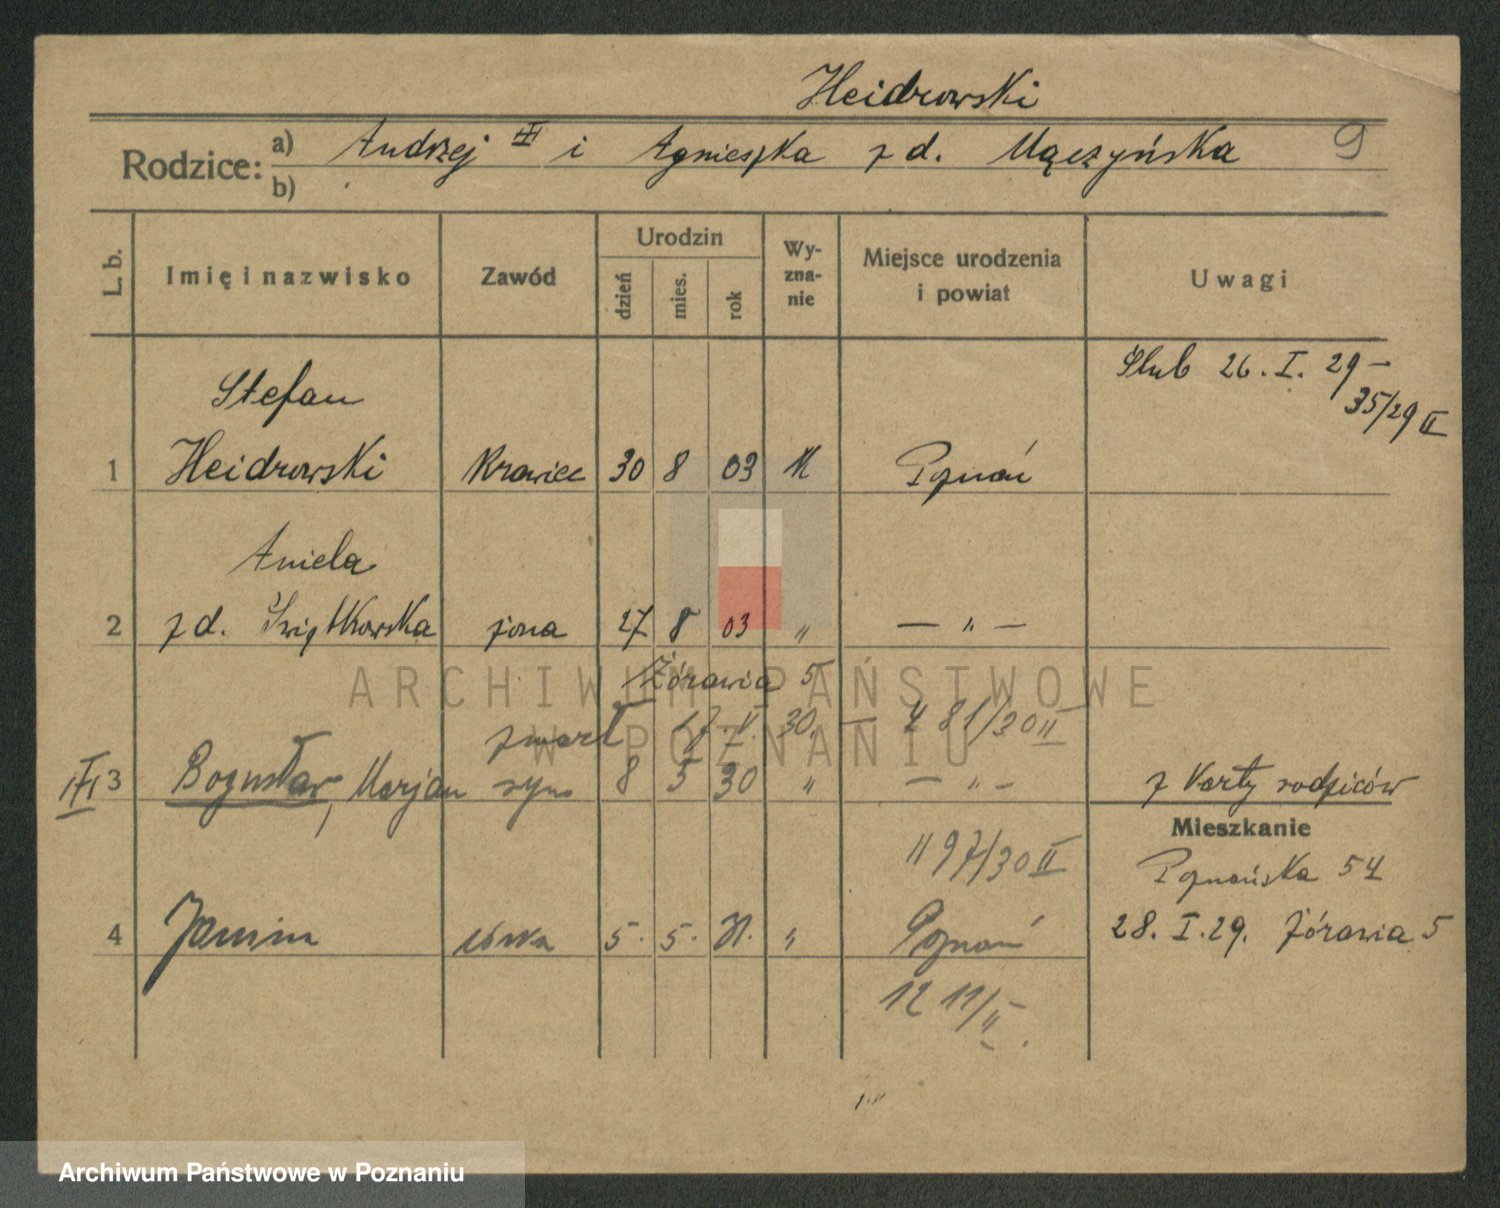 Heidrowski
Rodzice: a) Andrzej i Agnieszka z d. Mączyńska 9
b)
L. b. Imię i nazwisko Zawód Urodzin dzień mies. rok Wyznanie Miejsce urodzenia i powiat Uwagi
Ślub 26. I. 29 –
35/29 II
Stefan
1 Heidrowski Krawiec 30 8 03 K Poznań
Aniela
2 z d. Świątkowska żona 27 8 03 " — " —
Żórawia 5
zmarł 17. V. 30 81/30 II
3 Bogusław, Marjan syn 8 5 30 " — " — z Karty rodziców
Mieszkanie
1197/30 II
Poznańska 54
4 córka 5. 5. 31. " Poznań
28. I. 29. Żórawia 5
1211/II
ARCHIWUM PAŃSTWOWE
W POZNANIU
Archiwum Państwowe w Poznaniu